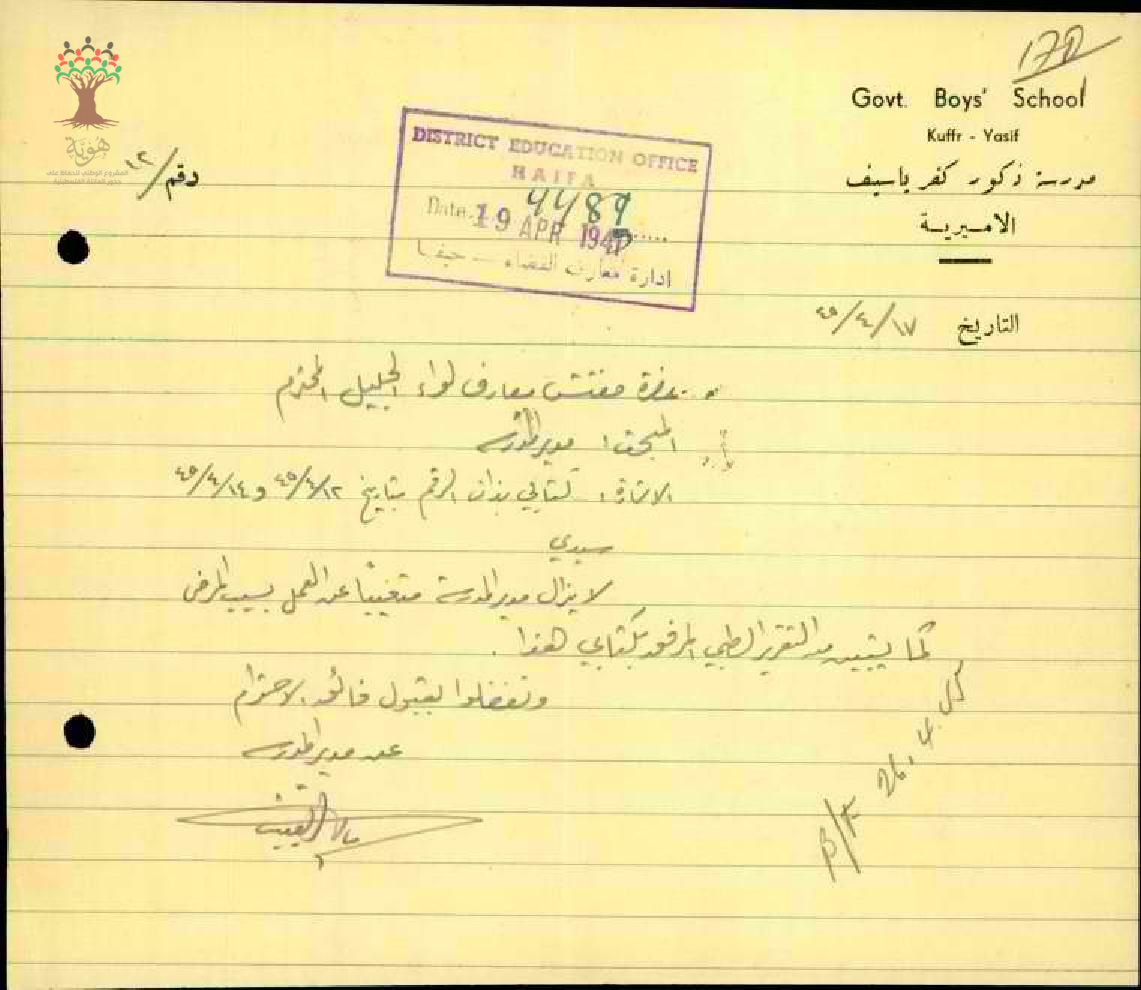 170
Govt. Boys' School
Kuffr - Yasif
مدرسة ذكور كفر ياسيف
الاميرية
هوية
المشروع الوطني للحفاظ على
جذور العائلة الفلسطينية
رقم / ١٢
DISTRICT EDUCATION OFFICE
HAIFA
4489
Date 19 APR 194
ادارة معارف القضاء — حيفا
التاريخ ١٧/٤/٤٥
حضرة مفتش معارف لواء الجليل المحترم
المبحث: مدير المدرسة
الاشارة: كتابي بذات الرقم بتاريخ ١٢/٤/٤٥ و ١٤/٤/٤٥
سيدي
لا يزال مدير المدرسة متغيباً عن العمل بسبب المرض
كما يتبين من التقرير الطبي المرفق بكتابي هذا .
وتفضلوا بقبول فائق الاحترام
عن مدير المدرسة
B/F 26.4.45